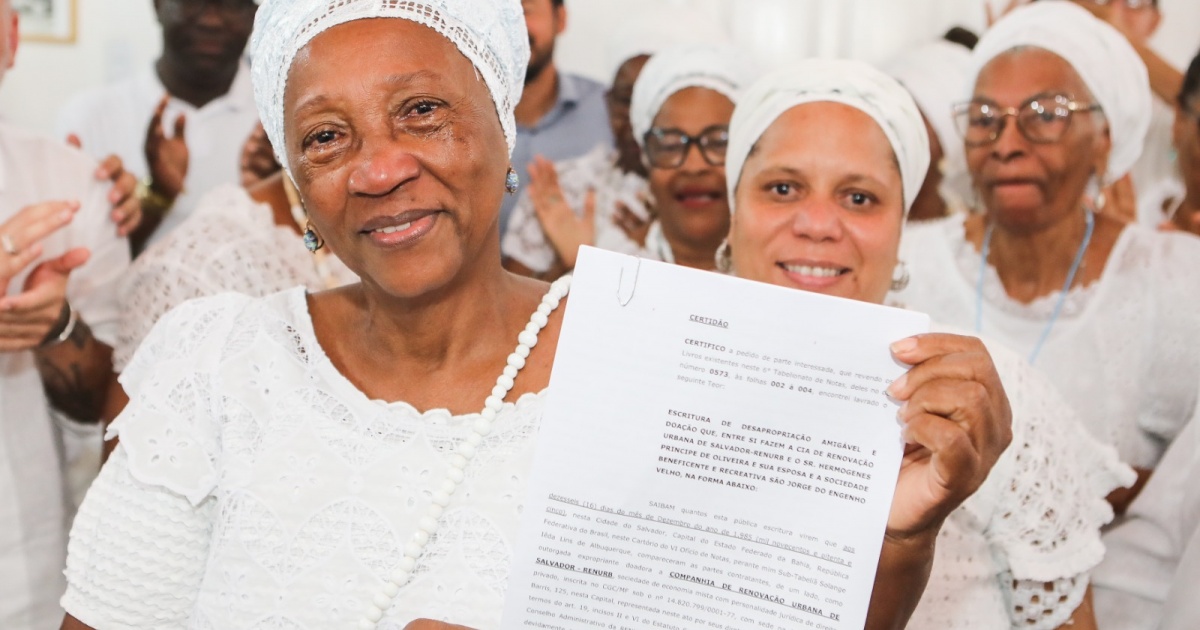 CERTIDÃO
CERTIFICO a pedido de parte interessada, que revendo
Livros existentes neste 6º Tabelionato de Notas, deles no
número 0573, às folhas 002 à 004, encontrei lavrado
seguinte Teor:
ESCRITURA DE DESAPROPRIAÇÃO AMIGÁVEL E
DOAÇÃO QUE, ENTRE SI FAZEM A CIA DE RENOVAÇÃO
URBANA DE SALVADOR-RENURB E O SR. HERMOGENES
PRINCIPE DE OLIVEIRA E SUA ESPOSA E A SOCIEDADE
BENEFICENTE E RECREATIVA SÃO JORGE DO ENGENHO
VELHO, NA FORMA ABAIXO:
SAIBAM quantos esta pública escritura virem que aos
dezesseis (16) dias do mês de Dezembro do ano de 1.985 (mil novecentos e oitenta e
cinco), nesta Cidade do Salvador, Capital do Estado Federado da Bahia, República
Federativa do Brasil, neste Cartório do VI Ofício de Notas, perante mim Sub-Tabeliã Solange
Iêda Lins de Albuquerque, compareceram as partes contratantes, de um lado, como
outorgada expropriante doadora a COMPANHIA DE RENOVAÇÃO URBANA DE
SALVADOR - RENURB, sociedade de economia mista com personalidade jurídica de direito
privado, inscrita no CGC/MF sob o nº 14.820.799/0001-77, com sede
Barris, 125, nesta Capital, representada neste ato por seus
termos do art. 19, incisos II e VI do Estatuto
Conselho Administrativo da
devidamente